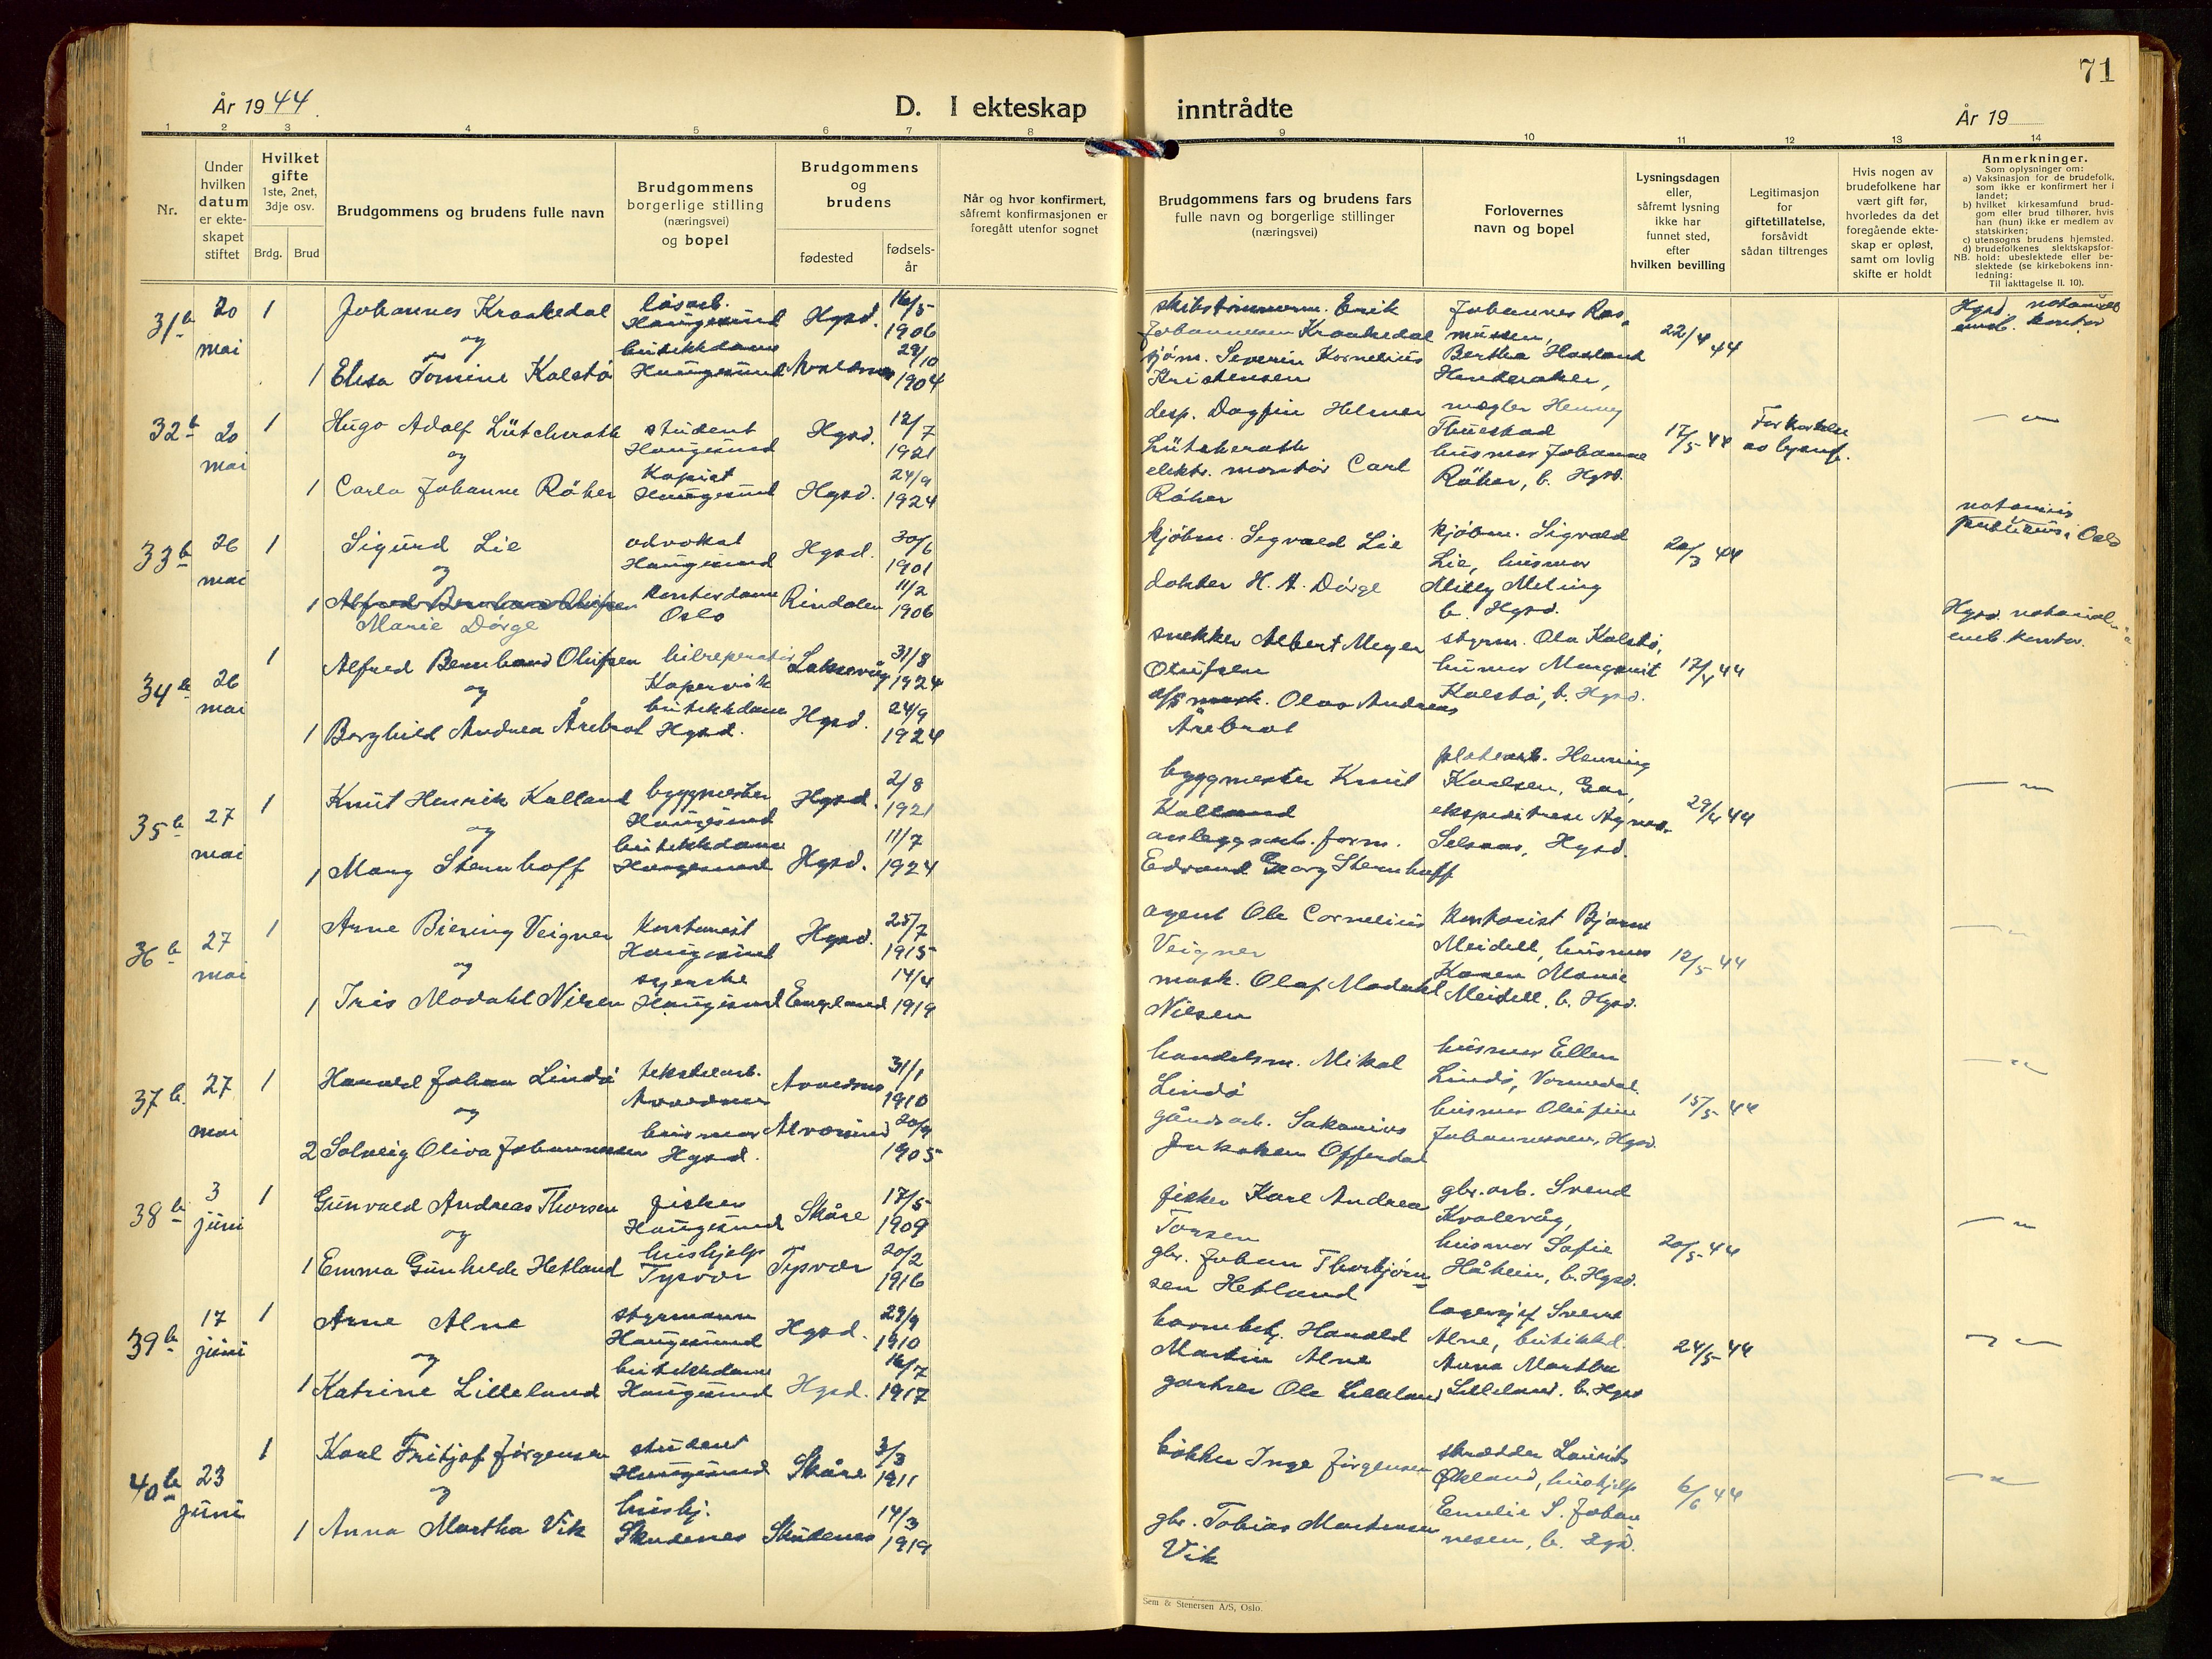 71
År 1944.
D. I ekteskap inntrådte
År 19
1 2 3 4 5 6 7 8 9 10 11 12 13 14
Nr.
Under
hvilken
datum
er ekte-
skapet
stiftet
Hvilket
gifte
1ste, 2net,
3dje osv.
Brdg. Brud
Brudgommens og brudens fulle navn
Brudgommens
borgerlige stilling
(næringsvei)
og bopel
Brudgommens
og
brudens
fødested
fødsels-
år
Når og hvor konfirmert,
såfremt konfirmasjonen er
foregått utenfor sognet
Brudgommens fars og brudens fars
fulle navn og borgerlige stillinger
(næringsvei)
Forlovernes
navn og bopel
Lysningsdagen
eller,
såfremt lysning
ikke har
funnet sted,
efter
hvilken bevilling
Legitimasjon
for
giftetillatelse,
forsåvidt
sådan tiltrenges
Hvis nogen av
brudefolkene har
vært gift før,
hvorledes da det
foregående ekte-
skap er opløst,
samt om lovlig
skifte er holdt
Anmerkninger.
Som oplysninger om:
a) Vaksinasjon for de brudefolk,
som ikke er konfirmert her i
landet;
b) hvilket kirkesamfund brud-
gom eller brud tilhører, hvis
han (hun) ikke er medlem av
statskirken;
c) utensogns brudens hjemsted.
d) brudefolkenes slektskapsfor-
NB. hold: ubeslektede eller be-
slektede (se kirkebokens inn-
ledning:
Til iakttagelse II. 10).
31 b 20 mai 1 Johannes Kraakedal
løsarb. Haugesund Hgsd. 16/5 1906
og
1 Elisa Tomine Kalstø
butikkdame Haugesund Avaldsnes 29/10 1904
skibstømmerm. Erik
Johannesen Kraakedal
sjøm. Severin Kornelius
Kristensen
Johannes Ras-
mussen,
Bertha Havland
22/4 44
Hgsd. notarial
emb. kontor
32 b 20 mai 1 Hugo Adolf Lütcherath
student Haugesund Hgsd. 12/7 1921
og
1 Carla Johanne Röher
Kopist Haugesund Hgsd. 24/9 1924
desp. Dagfin Helmer
Lütcherath
elektr. montør Carl
Röher
megler Henny
Thuestad
husmor Johanne
Röher, b. Hgsd.
17/5 44
Forkortelse
av lysnt.
— " —
33 b 26 mai 1 Sigurd Lie
advokat Haugesund Hgsd. 30/6 1901
og
1 Alfred Bernhard Olufsen
Marie Dørge
Kontordame Oslo Rindalen 11/2 1906
kjøbm. Sigvald Lie
doktor H. A. Dørge
kjøbm. Sigvald
Lie, husmor
Milly Meling
b. Hgsd.
20/3 44
notarius
publicus i Oslo
34 b 26 mai 1 Alfred Bernhard Olufsen
bilreperatør Kopervik Laksevåg 31/8 1924
og
1 Borghild Andrea Årebrot
butikkdame Hgsd. Hgsd. 24/9 1924
snekker Albert Meyer
Olufsen
Olav Andreas
Årebrot
styrm. Ola Kalstø,
husmor Margunit
Kalstø, b. Hgsd.
17/4 44
Hgsd. notarial
emb. kontor.
35 b 27 mai 1 Knut Henrik Kalland
byggmester Haugesund Hgsd. 2/8 1921
og
1 Mary Sternhoff
butikkdame Haugesund Hgsd. 11/7 1924
byggmester Knut
Kalland
anleggsarb. form.
Edvard Georg Sternhoff
platearb. Henning
ekspeditrise Agnes
Selsaas, Hgsd.
29/4 44
— " —
36 b 27 mai 1 Arne Biering Veigner
Kontorist Haugesund Hgsd. 25/7 1915
og
1 Iris Modahl Nilsen
syerske Haugesund England 14/4 1919
agent Ole Cornelius
Veigner
mask. Olaf Modahl
Nilsen
Kontorist Bjarne
Meidell, husmor
Karen Marie
Meidell, b. Hgsd.
12/5 44
— " —
37 b. 27 mai 1 Harald Johan Lindø
tekstilarb. Avaldsnes Avaldsnes 31/1 1910
og
2 Solveig Oliva Johannessen
husmor Hgsd. Alversund 20/9 1905
handelsm. Mikal
Lindø
gårdsarb. Sakarias
Jakobsen Offerdal
husmor Ellen
Lindø, Vormedal.
husmor Olufine
Johannessen, Hgsd.
15/5 44
— " —
38 b 3 juni 1 Gunvald Andreas Thorsen
fisker Haugesund Skåre 17/5 1909
og
1 Emma Gunhilde Hetland
hushjelp Tysvær Tysvær 20/2 1916
fisker Karl Andreas
Torsen
gbr. Johan Thorbjørn-
sen Hetland
gbr. arb. Svend
Kvalevåg,
husmor Sofie
Håheim, b. Hgsd.
20/5 44
— " —
39 b 17 juni 1 Arne Alne
styrmann Haugesund Hgsd. 29/9 1910
og
1 Katrine Lilleland
butikkdame Haugesund Hgsd. 16/7 1917
havnebetj. Harald
Martin Alne
gartner Ole Lilleland
lagersjef Sverre
Alne, butikkd.
Anna Martha
Lilleland. b. Hgsd
24/5 44
— " —
40 b 23 juni 1 Karl Fritjof Jørgensen
student Haugesund Skåre 3/3 1911
og
1 Anna Martha Vik
hushj. Skudenes Skudenes 14/3 1919
bøkker Inge Jørgensen
gbr. Tobias Martinsen
Vik
skrædder Laurits
Økland, hushjelp
Emelie S. Johan
nesen, b. Hgsd.
6/6 44
— " —
Sem & Stenersen A/S, Oslo.